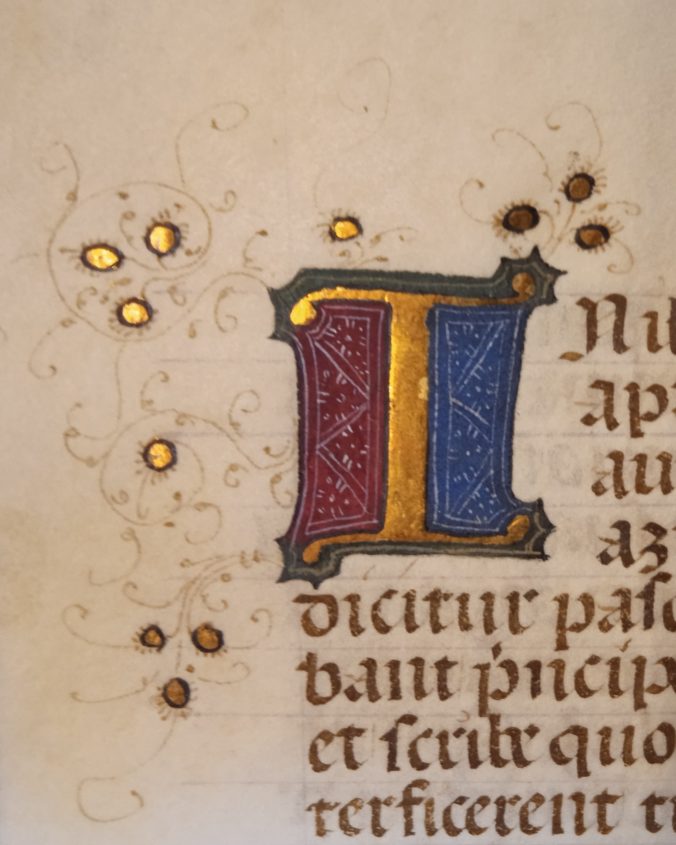 INil
ap
au
az
dicitur paſc
bant pͥncip
et ſcribe quo
terficerent ti